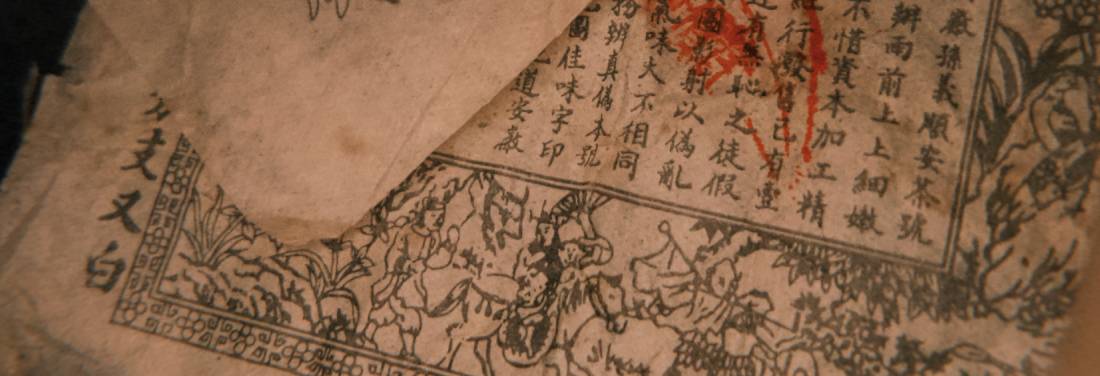 廠孫義順安茶號
辦雨前上上細嫩
不惜資本加工精
行發售已有壹
有無恥之徒假
圖影射以偽亂
氣味大不相同
辨真偽本號
圖佳味字印
安敬
支又白